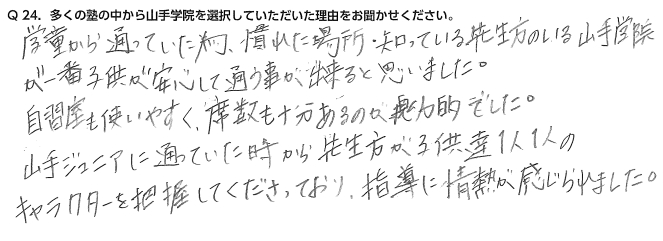 Q 24. 多くの塾の中から山手学院を選択していただいた理由をお聞かせください。
学童から通っていた為、慣れた場所・知っている先生方のいる山手学院
が一番子供が安心して通う事が出来ると思いました。
自習室も使いやすく、席数も十分あるのが魅力的でした。
山手ジュニアに通っていた時から先生方が子供達1人1人の
キャラクターを把握してくださっており、指導に情熱が感じられました。